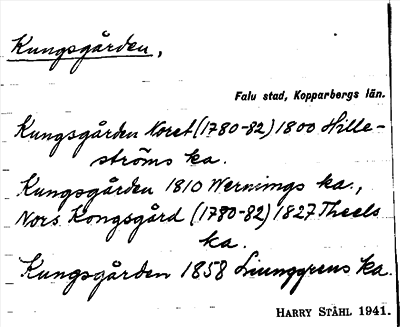 Kungsgården,
Falu stad, Kopparbergs län.
Kungsgården Noret (1780-82) 1800 Hille-
ströms ka.
Kungsgården 1810 Wernings ka.,
Nors Kongsgård (1780-82) 1827 Theels
ka.
Kungsgården 1858 Liunggrens ka.
HARRY STÅHL 1941.